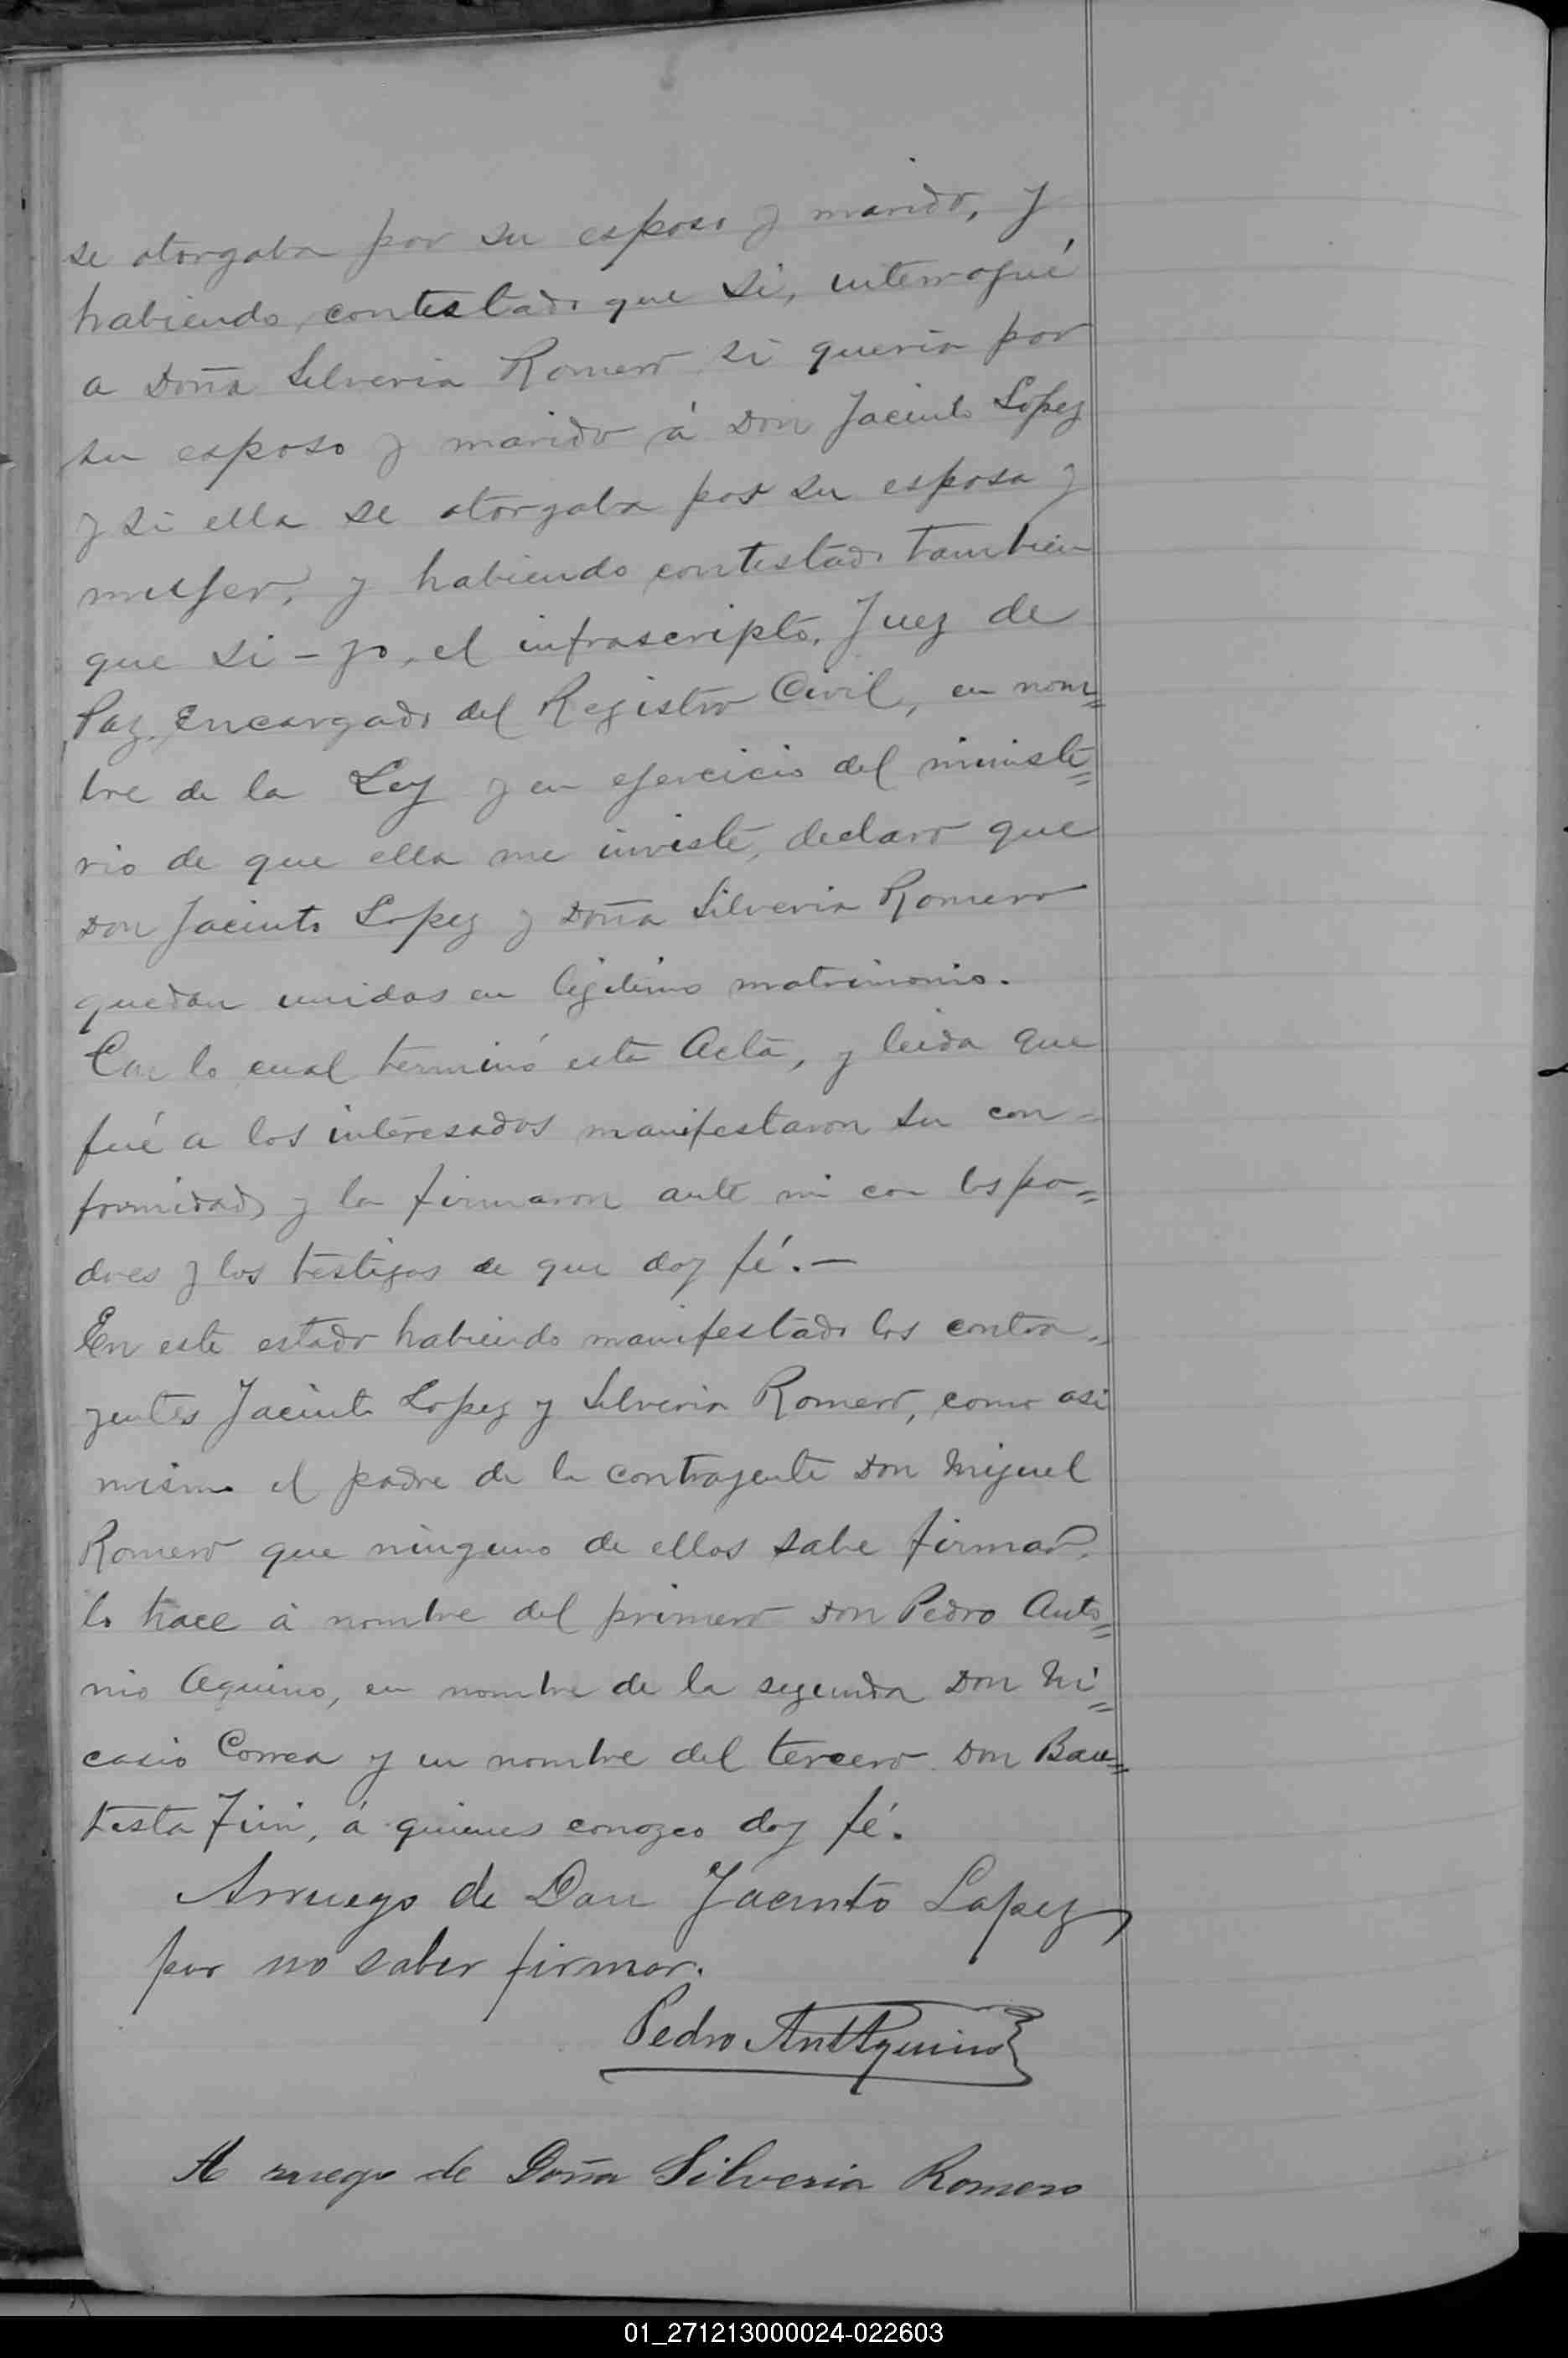 se otorgaba por su esposo y marido, y
habiendo contestado que si, interrogué
a Doña Silveria Romero si queria por
su esposo y marido á Don Jacinto Lopez
y si ella se otorgaba por su esposa y
mujer, y habiendo contestado tambien
que si - yo, el infrascripto, Juez de
Paz, Encargado del Registro Civil, en nom=
bre de la Ley y en ejercicio del ministe=
rio de que ella me inviste, declaro que
Don Jacinto Lopez y Doña Silveria Romero
quedan unidos en lejitimo matrimonio.
Con lo cual terminó esta Acta, y leida que
fué a los interesados manifestaron su con-
formidad, y la firmaron ante mi con los pa=
dres y los testigos de que doy fé. —
En este estado habiendo manifestado los contra-
yentes Jacinto Lopez y Silveria Romero, como asi
mismo el padre de la contrayente Don Miguel
Romero que ninguno de ellos sabe firmar,
lo hace á nombre del primero Don Pedro Anto=
nio Aquino, en nombre de la segunda Don Ni=
casio Correa y en nombre del tercero Don Bau=
tista Fini, á quienes conozco doy fé.
Arruego de Don Jacinto Lopez
por no saber firmar.
Pedro Ant Aquino
A ruego de Doña Silveria Romero
01_271213000024-022603